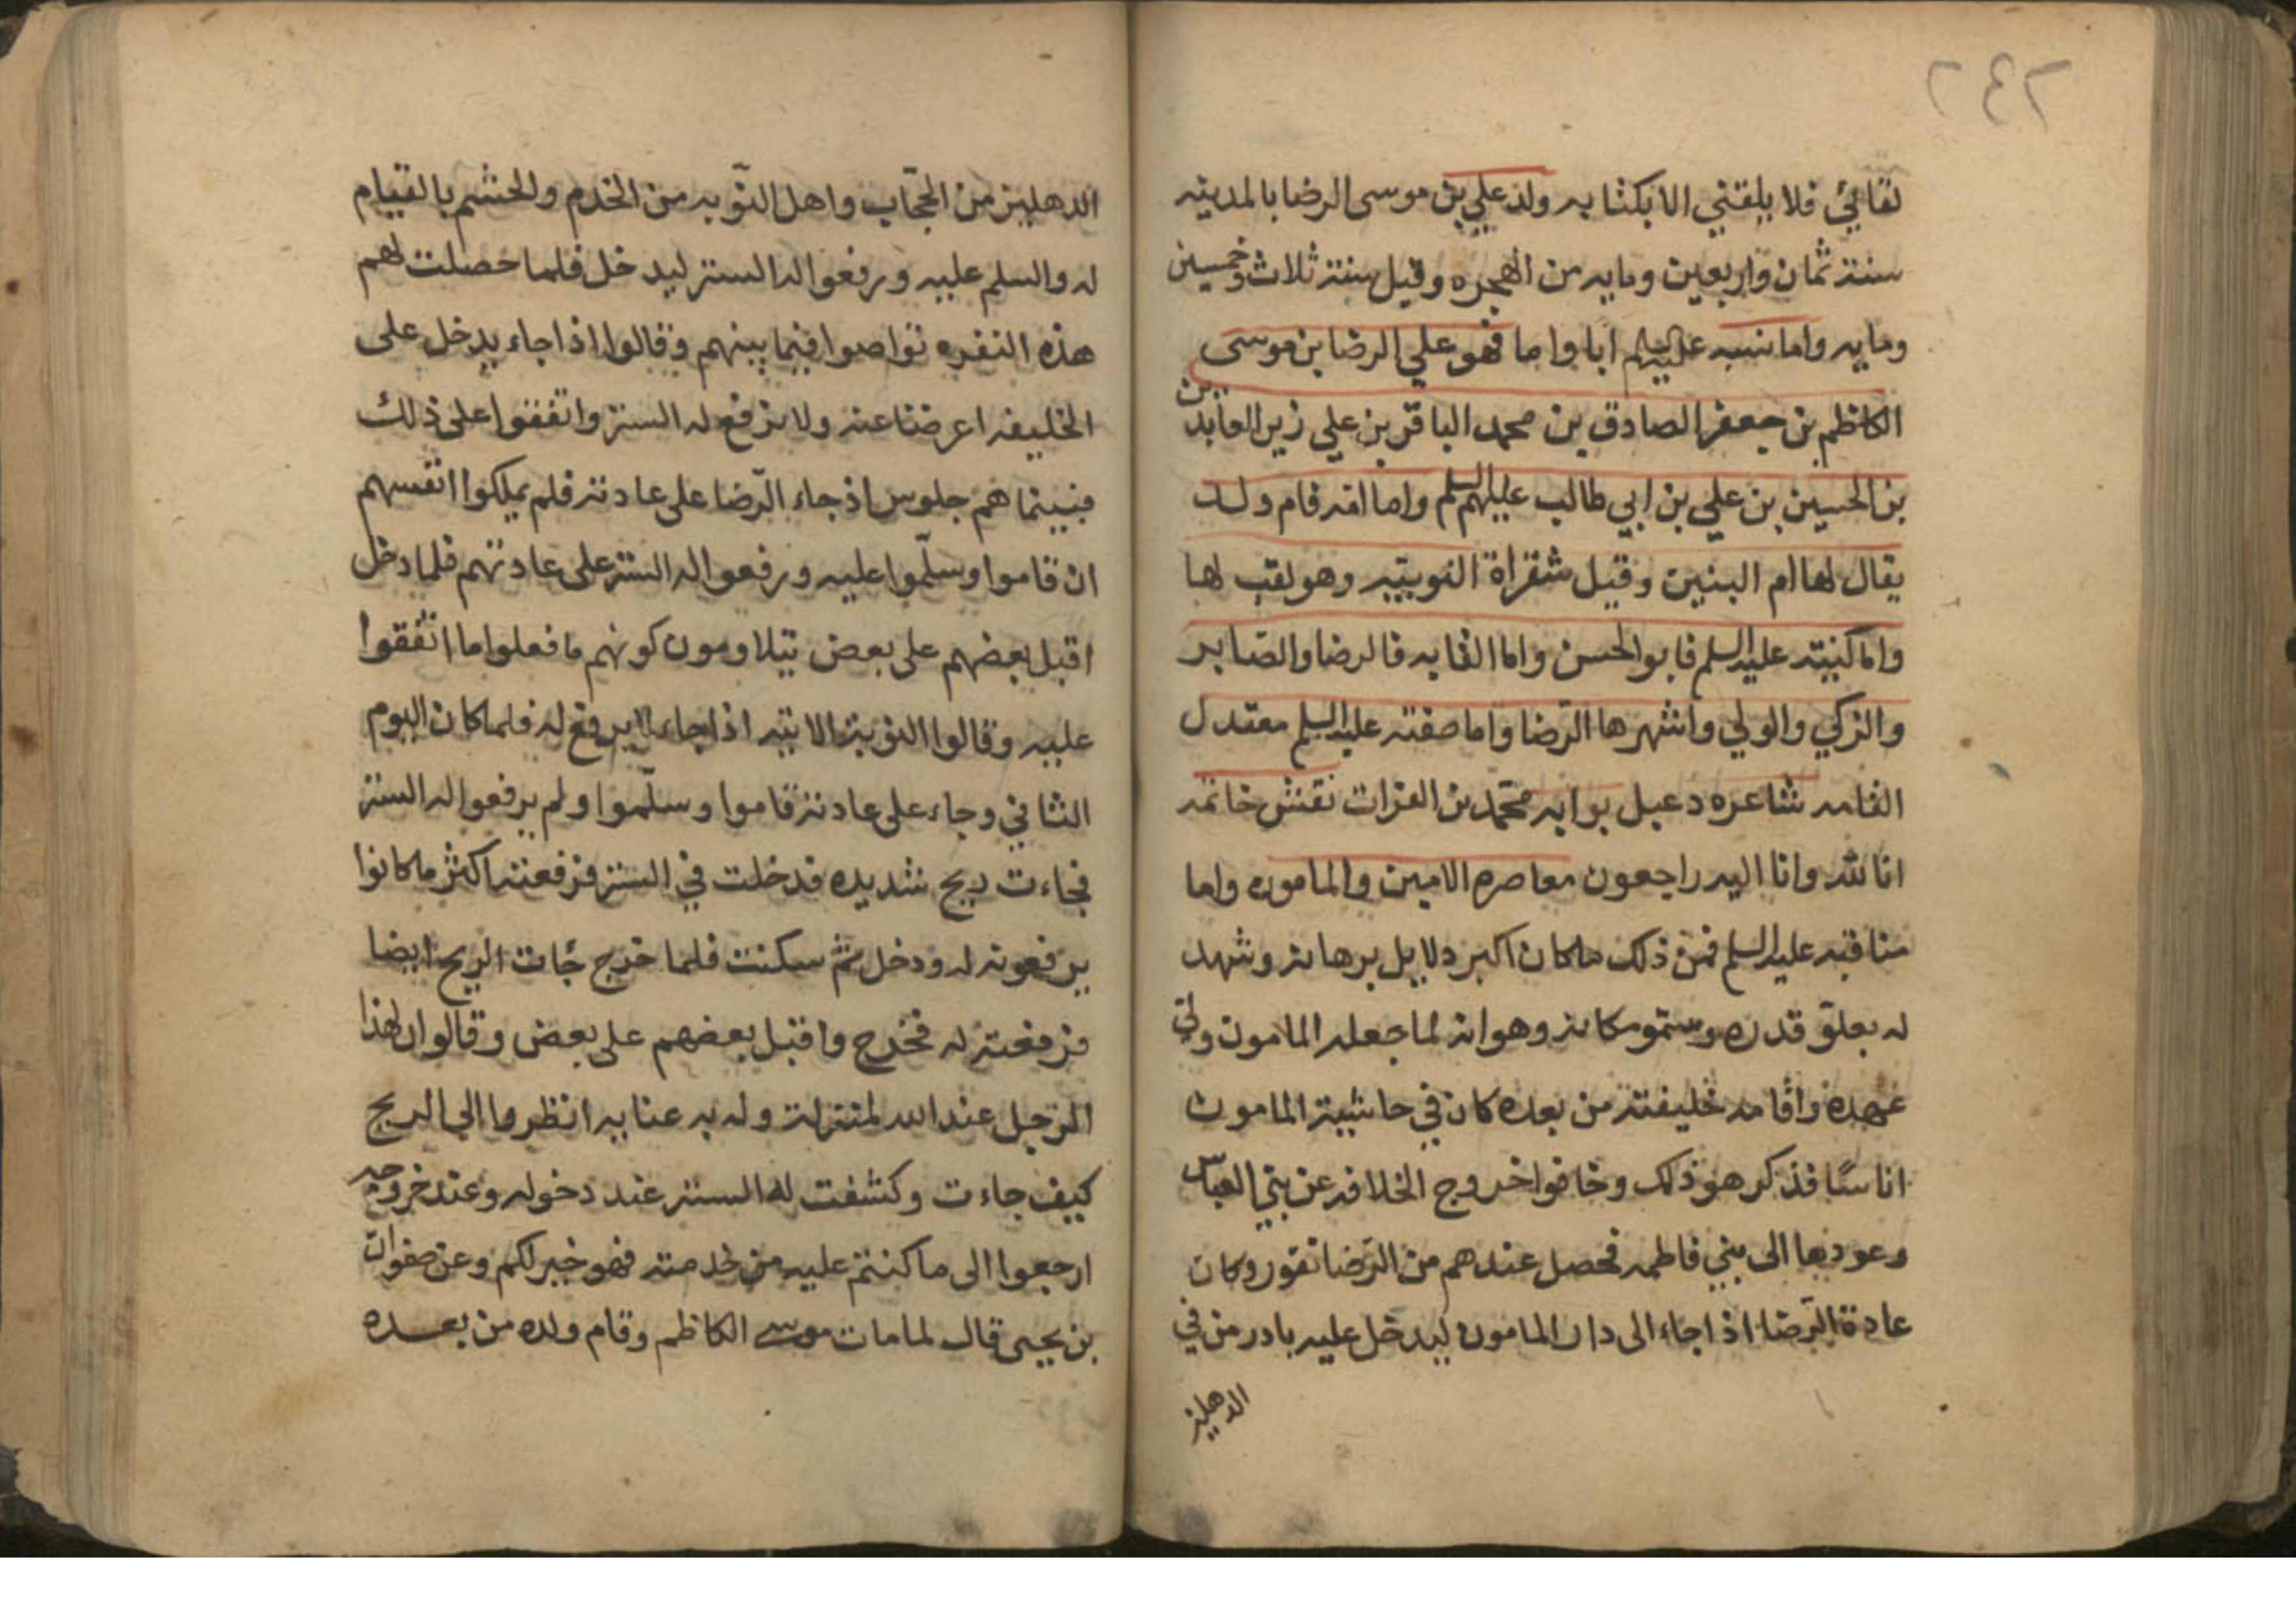 ٢٤٢
لقائي فلا يلقني الا بكتابه ولد علي بن موسى الرضا بالمدينه
سنة ثمان واربعين ومايه من الهجره وقيل سنة ثلاث وخمسين
ومايه واما نسبه عليه السلم ابا واما فهو علي الرضا بن موسى
الكاظم بن جعفر الصادق بن محمد الباقر بن علي زين العابدين
بن الحسين بن علي بن ابي طالب عليهم السلم واما امه فام ولد
يقال لها ام البنين وقيل شقراة النوبيّه وهو لقب لها
واما كنيته عليه السلم فابو الحسن واما القابه فالرضا والصابر
والزكي والولي واشهرها الرّضا واما صفته عليه السلم معتدل
القامه شاعره دعبل بوابه محمّد بن الفرات نقش خاتمه
انا لله وانا اليه راجعون معاصره الامين والمامون واما
مناقبه عليه السلم فمن ذلك ما كان اكبر دلايل برهانه وشهد
له بعلوّ قدره وسموّ مكانه وهو انه لما جعله المامون وليّ
عهده واقامه خليفته من بعده كان في حاشية المامون
اناسًا فذكر هو ذلك وخافوا خروج الخلافه عن بني العباس
وعودها الى بني فاطمه فحصل عندهم من الرّضا نفور وكان
عادة الرّضا اذا جاء الى دار المامون ليدخل عليه بادر من في
الدهليز
الدهليز من الحجّاب واهل النّوبه من الخدم والحشم بالقيام
له والسلم عليه ورفعوا له الستر ليدخل فلما حصلت لهم
هذه النفره تواصوا فيما بينهم وقالوا اذا جاء يدخل على
الخليفه اعرضنا عنه ولا نرفع له الستر واتفقوا على ذلك
فبينما هم جلوس اذ جاء الرّضا على عادته فلم يملكوا انفسهم
ان قاموا وسلّموا عليه ورفعوا له الستر على عادتهم فلما دخل
اقبل بعضهم على بعض يتلاومون كونهم ما فعلوا ما اتّفقوا
عليه وقالوا النوبة الاتيه اذا جاء لا يرفع له فلما كان اليوم
الثاني وجاء على عادته قاموا وسلّموا ولم يرفعوا له الستر
فجاءت ريح شديده فدخلت في الستر فرفعته اكثر ما كانوا
يرفعونه له ودخل ثم سكنت فلما خرج جات الريح ايضا
فرفعته له فخرج واقبل بعضهم على بعض وقالوا ان لهذا
الرجل عند الله لمنزلة وله به عنايه انظروا الى الريح
كيف جاءت وكشفت له الستر عند دخوله وعند خروجه
ارجعوا الى ما كنتم عليه من خدمته فهو خير لكم وعن صفوان
بن يحيى قال لما مات موسى الكاظم وقام ولده من بعده